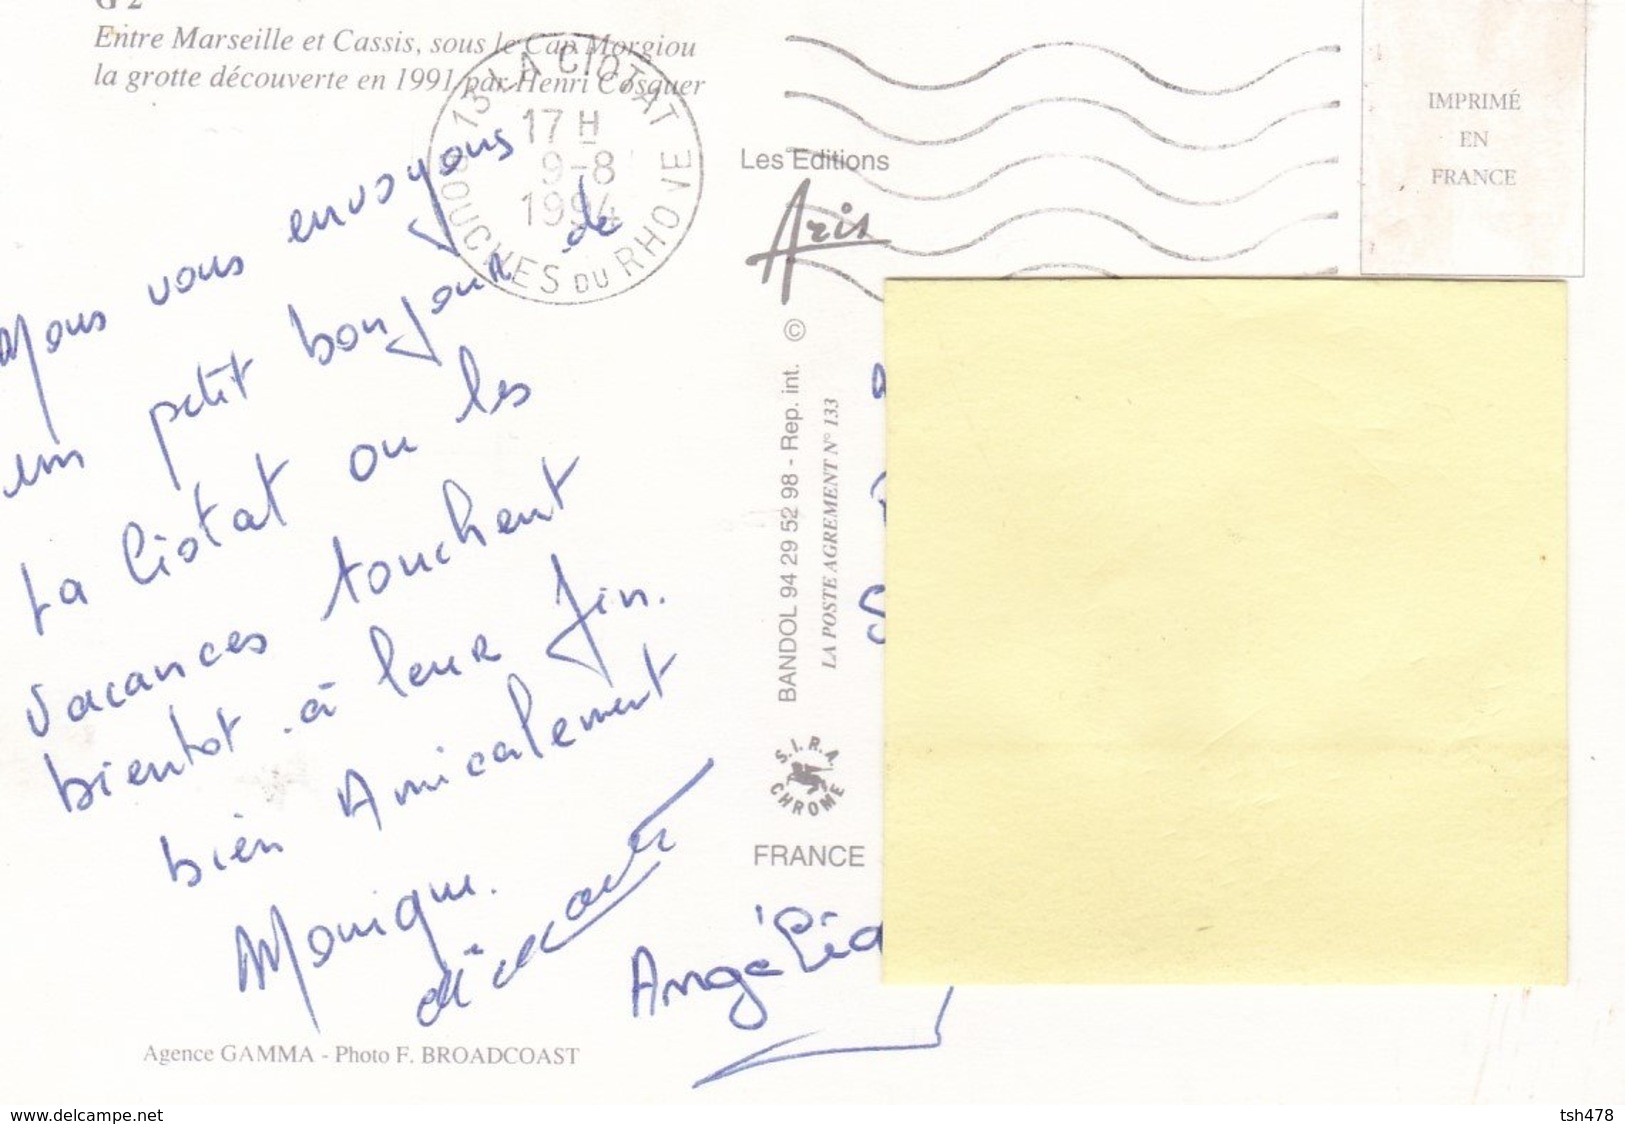 G 2
Entre Marseille et Cassis, sous le Cap Morgiou
la grotte découverte en 1991 par Henri Cosquer
13 LA CIOTAT
17 H
9-8
1994
BOUCHES DU RHONE
Nous vous envoyons
un petit bonjour de
La Ciotat ou les
vacances touchent
bientot à leur fin.
bien Amicalement
Monique.
Angélia
Agence GAMMA - Photo F. BROADCOAST
Les Editions
Aris
©
BANDOL 94 29 52 98 - Rep. int.
LA POSTE AGREMENT N° 133
S.I.R.A
CHROME
FRANCE
IMPRIMÉ
EN
FRANCE
www.delcampe.net
tsh478